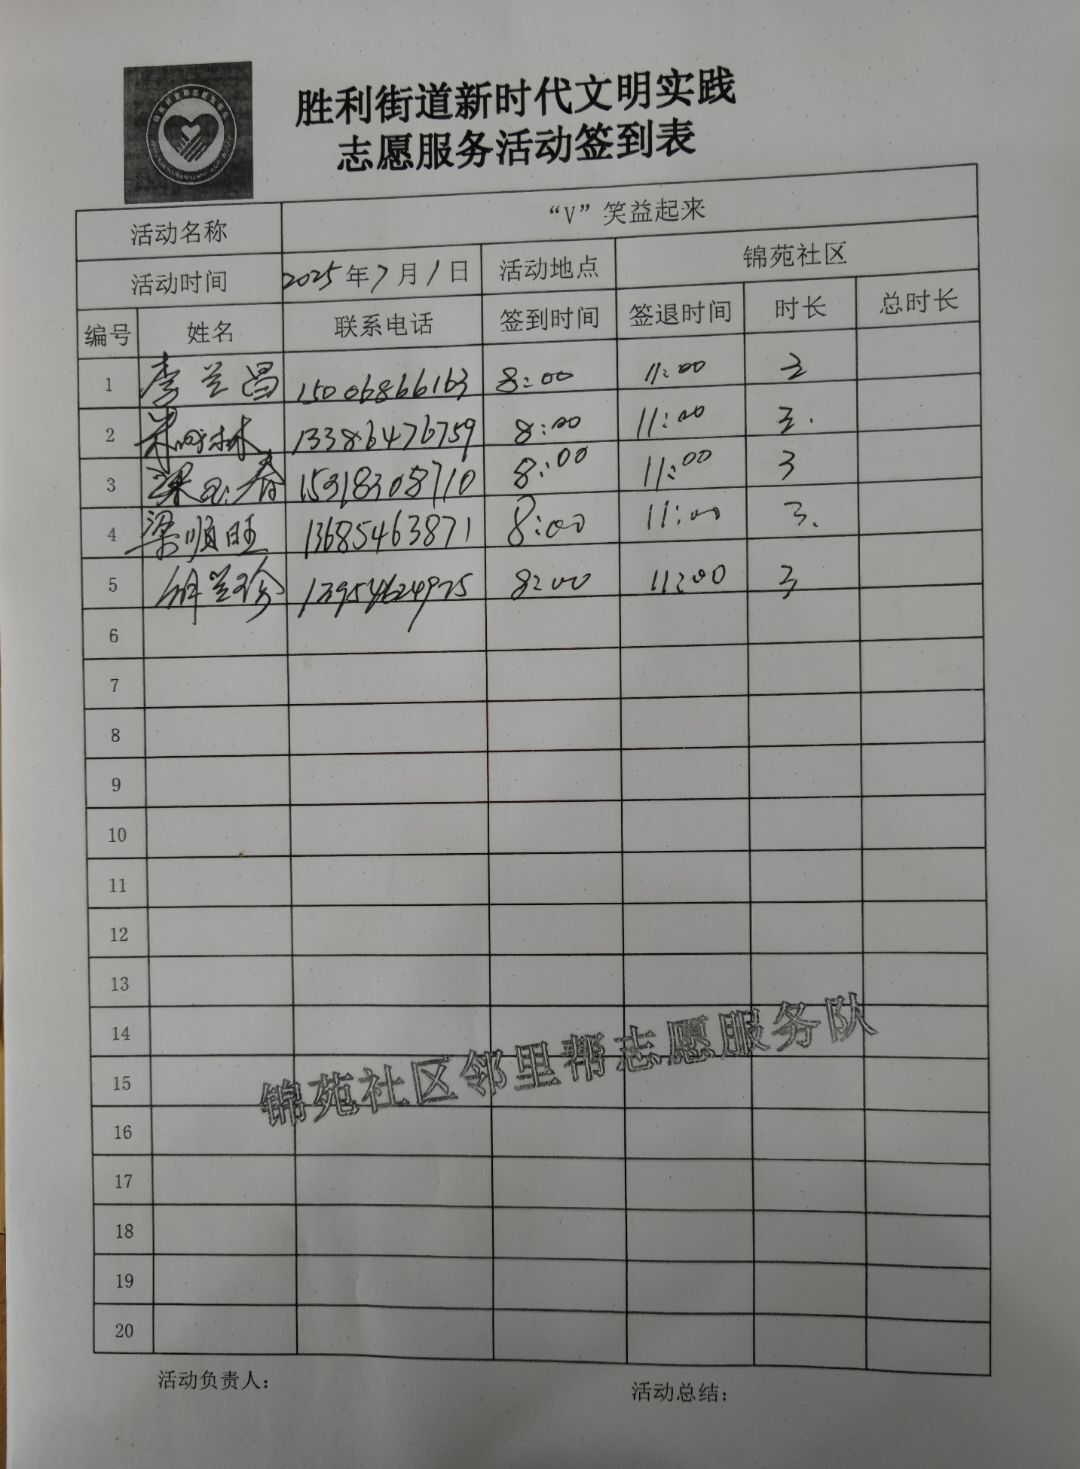 胜利街道新时代文明实践
志愿服务活动签到表
活动名称 “V”笑益起来
活动时间 2025年7月1日 活动地点 锦苑社区
编号 姓名 联系电话 签到时间 签退时间 时长 总时长
1 李兰昌 15006866163 8:00 11:00 3
2 林 13386476759 8:00 11:00 3.
3 梁玉春 15318308710 8:00 11:00 3
4 梁顺旺 13685463871 8:00 11:00 3.
5 兰珍 13954624975 8:00 11:00 3
6
7
8
9
10
11
12
13
14
15
16
17
18
19
20
锦苑社区邻里帮志愿服务队
活动负责人:
活动总结: